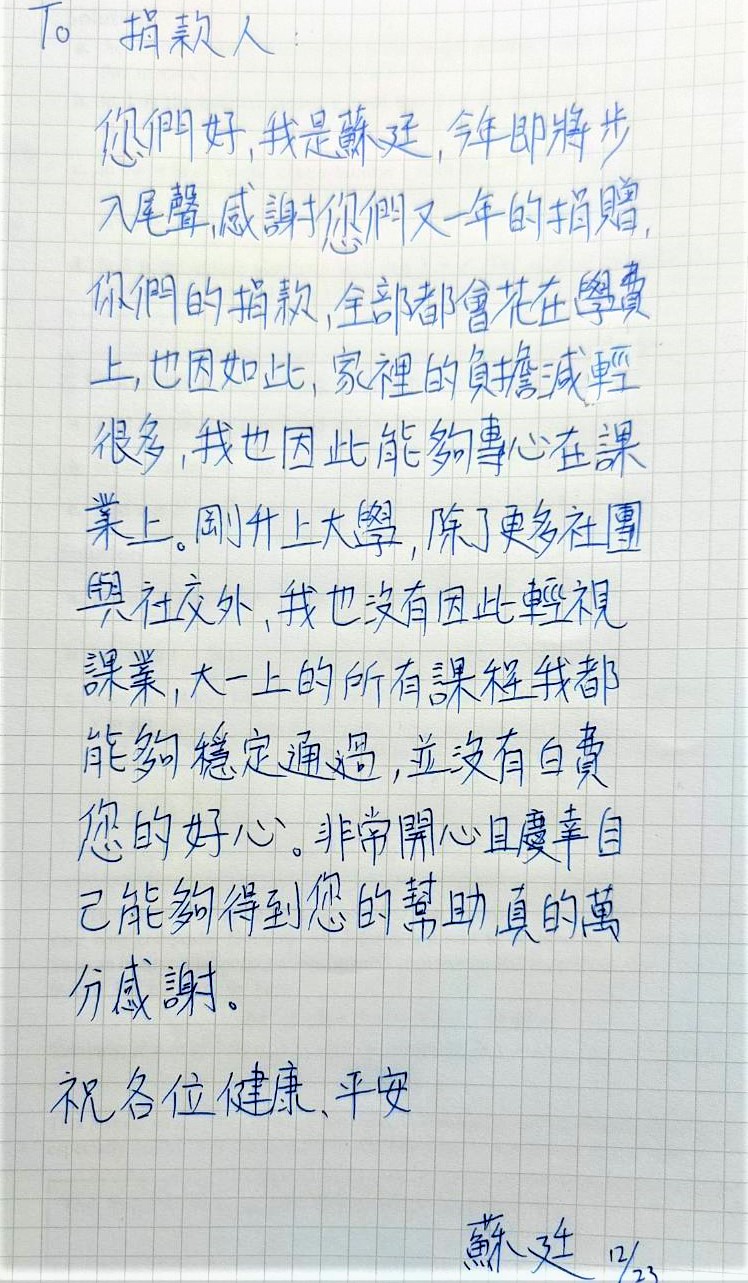 To 捐款人:
您們好,我是蘇廷,今年即將步
入尾聲,感謝您們又一年的捐贈,
你們的捐款,全部都會花在學費
上,也因如此,家裡的負擔減輕
很多,我也因此能夠專心在課
業上。剛升上大學,除了更多社團
與社交外,我也沒有因此輕視
課業,大一上的所有課程我都
能夠穩定通過,並沒有白費
您的好心。非常開心且慶幸自
己能夠得到您的幫助,真的萬
分感謝。
祝各位健康、平安
蘇廷 12/23